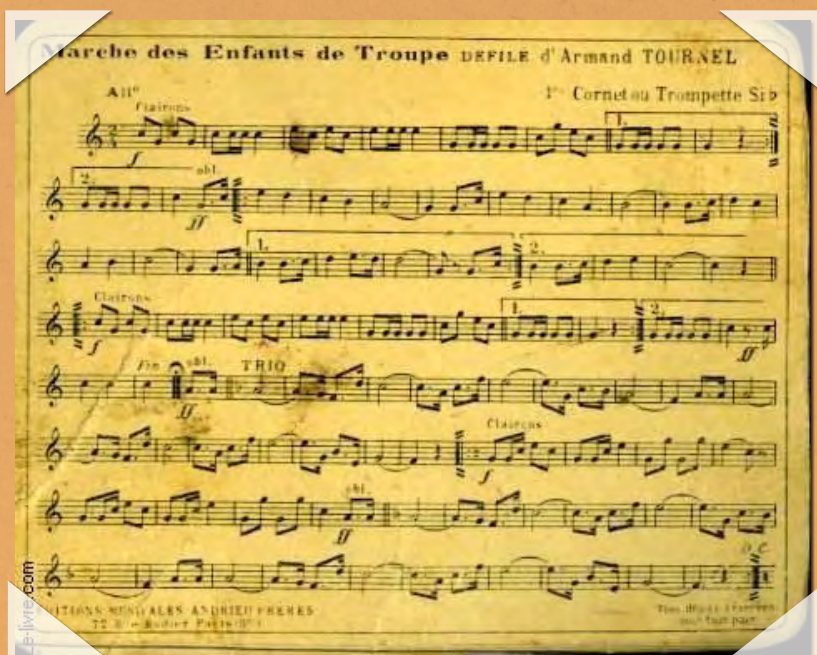 Marche des Enfants de Troupe DEFILE d'Armand TOURNEL
Allº
1er Cornet ou Trompette Si♭
Clairons
1.
f
2.
obl.
ff
1.
2.
Clairons
1.
2.
f
ff
Fin
obl.
TRIO
ff
Clairons
f
obl.
ff
D.C.
EDITIONS MUSICALES ANDRIEU FRERES
Tous droits réservés
pour tout pays
Le-livre.com